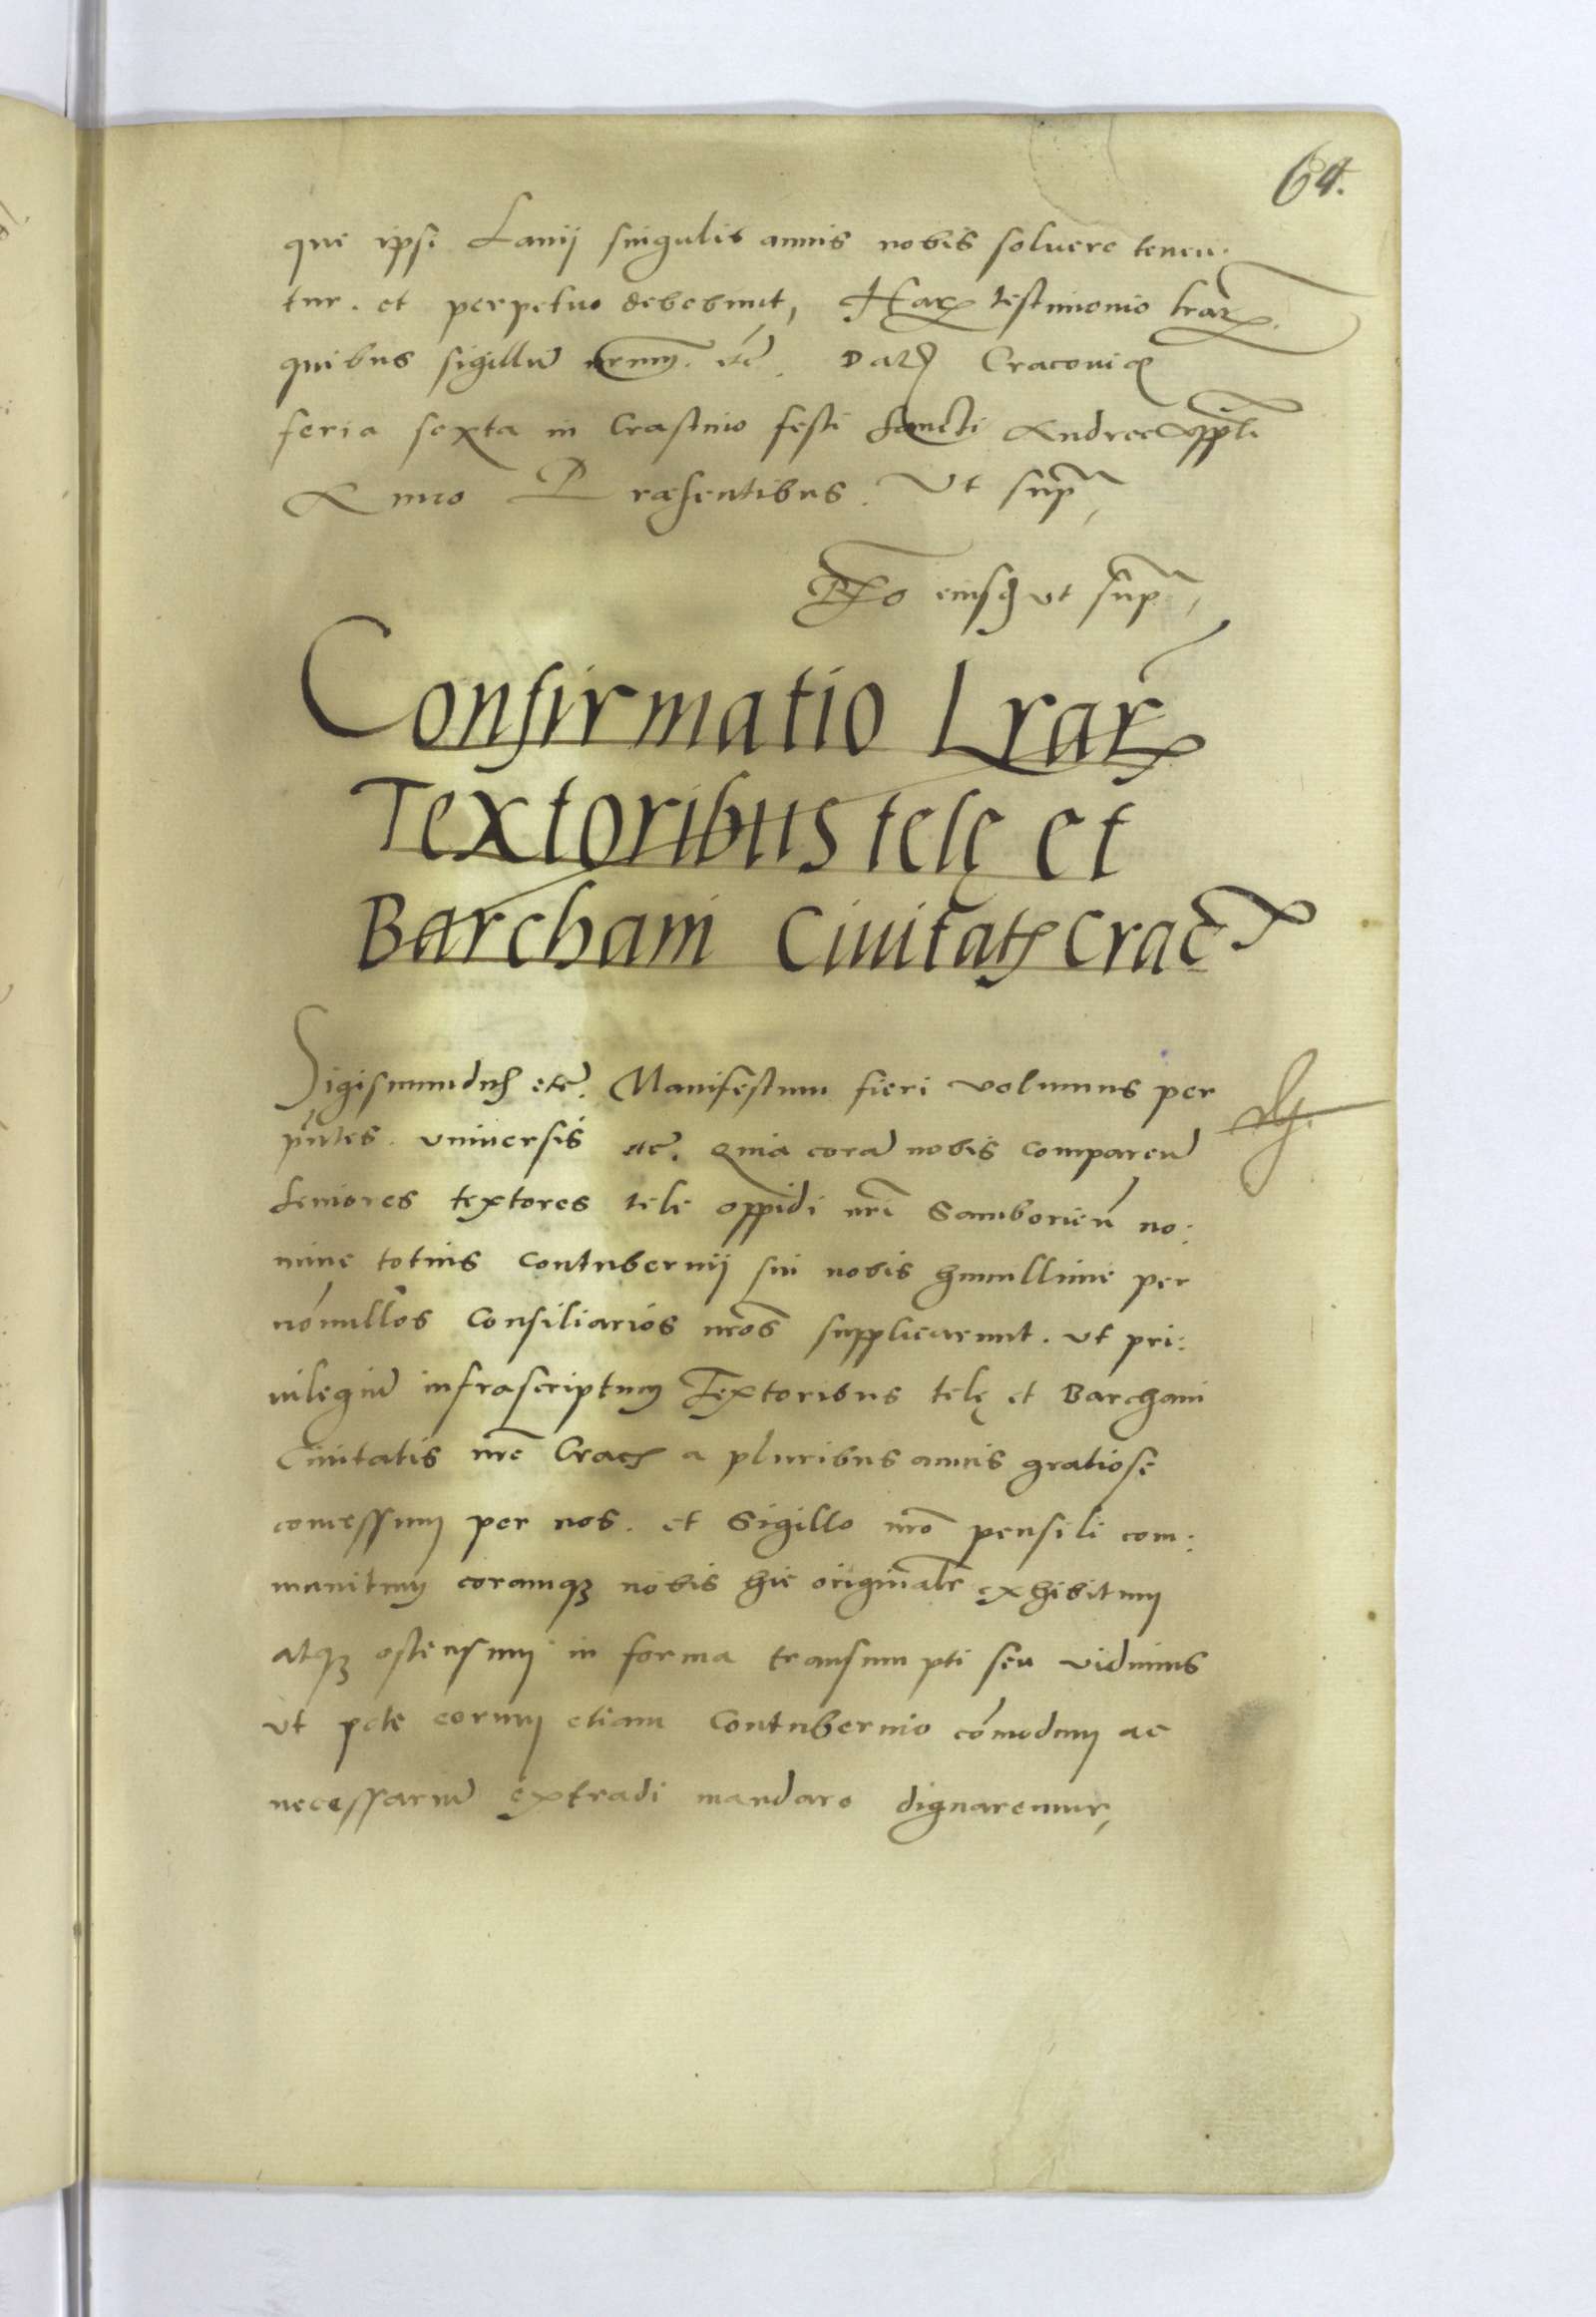 64.
que ipsi Lanij singulis annis nobis soluere tenen-
tur. et perpetuo debebunt, Harꝝ testimonio lrarꝝ.
quibus sigillũ nrum. etc̃. Datꝭ Cracouię
feria sexta in Crastino festi Sancti Andree Appli
Anno Præsentibus. Ut supra,
Rlo eiusdꝭ ut supra,
Confirmatio Lrarꝝ
Textoribus telę et
Barchani Ciuitatꝭ Crac̃
Sigismundus etc̃. Manifestum fieri volumus per
pn̄tes. vniuersis etc̃. Quia corã nobis comparen̄
Seniores textores tele oppidi nr̃i Samborien̄ no:
mine totius Contubernij sui nobis humillime per
nōnullos Consiliarios nr̃os supplicarunt. ut pri:
uilegiũ infrascriptum Textoribus telę et Barchani
Ciuitatis nr̃e Cracꝭ a pluribus annis gratiose
concessum per nos. et Sigillo nr̃o pensili com:
munitum coramqꝫ nobis hic originalr̃ exhibitum
atqꝫ ostensum in forma transumpti seu vidimus
ut pcte eorum etiam Contubernio cōmodum ac
necessariũ extradi mandare dignaremur,